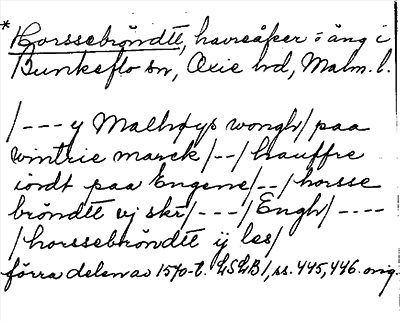 * Horssebröndtt, havreåker o äng i
Bunkeflo sn, Oxie hd, Malm. l.
/--- y Malhøys wongh/ paa
wintrie marck/--/hauffre
iordt paa Engene/--/horsse
bröndtt vj skr/---/Engh/----
/horssebröndtt ij les/
förra delen av 1570-t. LSLB1, ss. 445, 446. orig.